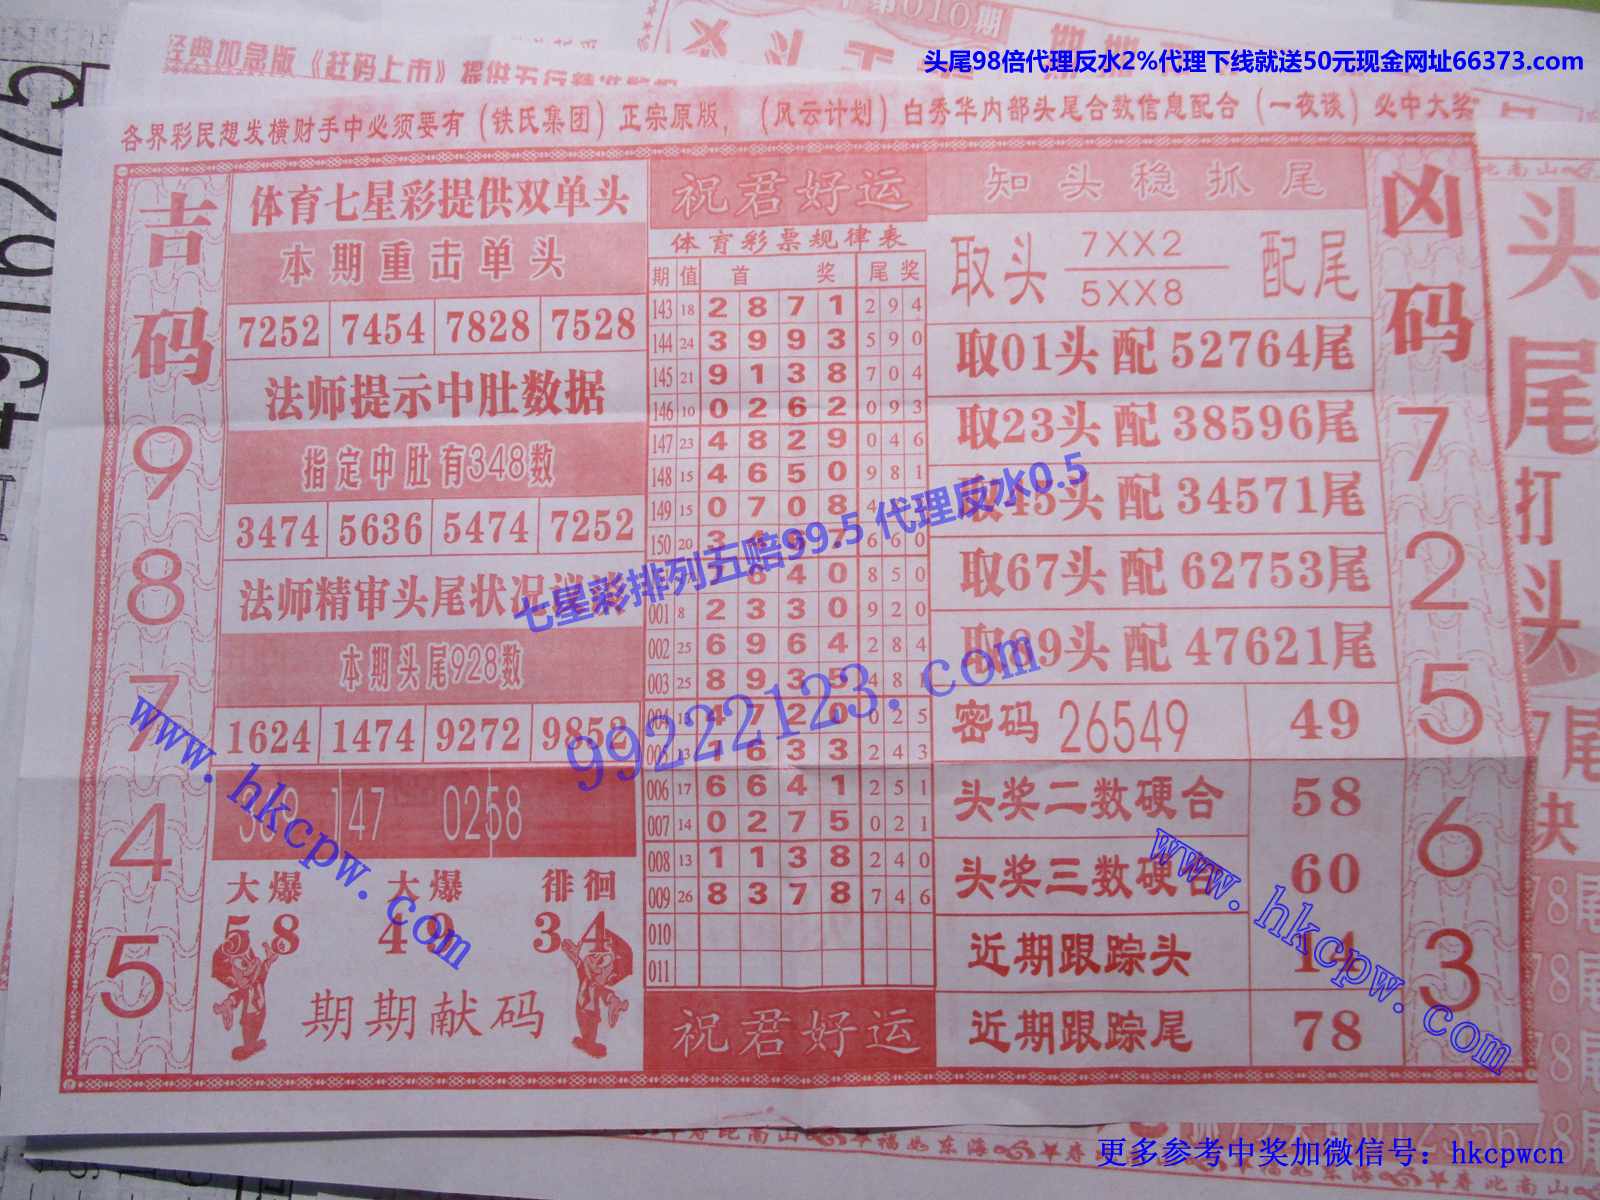 头尾98倍代理反水2%代理下线就送50元现金网址66373.com
第010期
经典加急版《赶码上市》提供五行精准数据
各界彩民想发横财手中必须要有（铁氏集团）正宗原版，（风云计划）白秀华内部头尾合数信息配合（一夜谈）必中大奖
吉码
9
8
7
4
5
体育七星彩提供双单头
本期重击单头
7252 7454 7828 7528
法师提示中肚数据
指定中肚有348数
3474 5636 5474 7252
法师精审头尾状况
本期头尾928数
1624 1474 9272 9852
147 0258
大爆 大爆 徘徊
58 49 34
期期献码
祝君好运
体育彩票规律表
期 值 首 奖 尾 奖
143 18 2 8 7 1 2 9 4
144 24 3 9 9 3 5 9 0
145 21 9 1 3 8 7 0 4
146 10 0 2 6 2 0 9 3
147 23 4 8 2 9 0 4 6
148 15 4 6 5 0 9 8 1
149 15 0 7 0 8
150 20 3 6 6 0
6 4 0 8 5 0
001 8 2 3 3 0 9 2 0
002 25 6 9 6 4 2 8 4
003 25 8 9 3 5 4 8 1
004 13 4 7 2 0 0 2 5
005 13 1 6 3 3 2 4 3
006 17 6 6 4 1 2 5 1
007 14 0 2 7 5 0 2 1
008 13 1 1 3 8 2 4 0
009 26 8 3 7 8 7 4 6
010
011
祝君好运
知头稳抓尾
取头 7XX2 配尾
5XX8
取01头 配 52764尾
取23头 配 38596尾
取45头 配 34571尾
取67头 配 62753尾
取89头 配 47621尾
密码 26549 49
头奖二数硬合 58
头奖三数硬合 60
近期跟踪头 14
近期跟踪尾 78
凶码
7
2
5
6
3
头
尾
打
头
7尾
决
78尾
78尾
78尾
78尾
七星彩排列五赔99.5 代理反水0.5
99222123.com
www.hkcpw.com
www.hkcpw.com
寿比南山 福如东海 寿比南山 福如东海 寿比南山
更多参考中奖加微信号：hkcpwcn